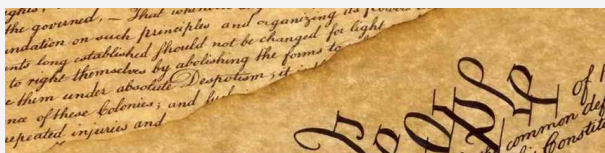 the governed, — That whenever
ndation on such principles and organizing its powers
nts long established should not be changed for light
to right themselves by abolishing the forms to
e them under absolute Despotism; it
nce of these Colonies; and such
repeated injuries and
People
of
common def
Constitu